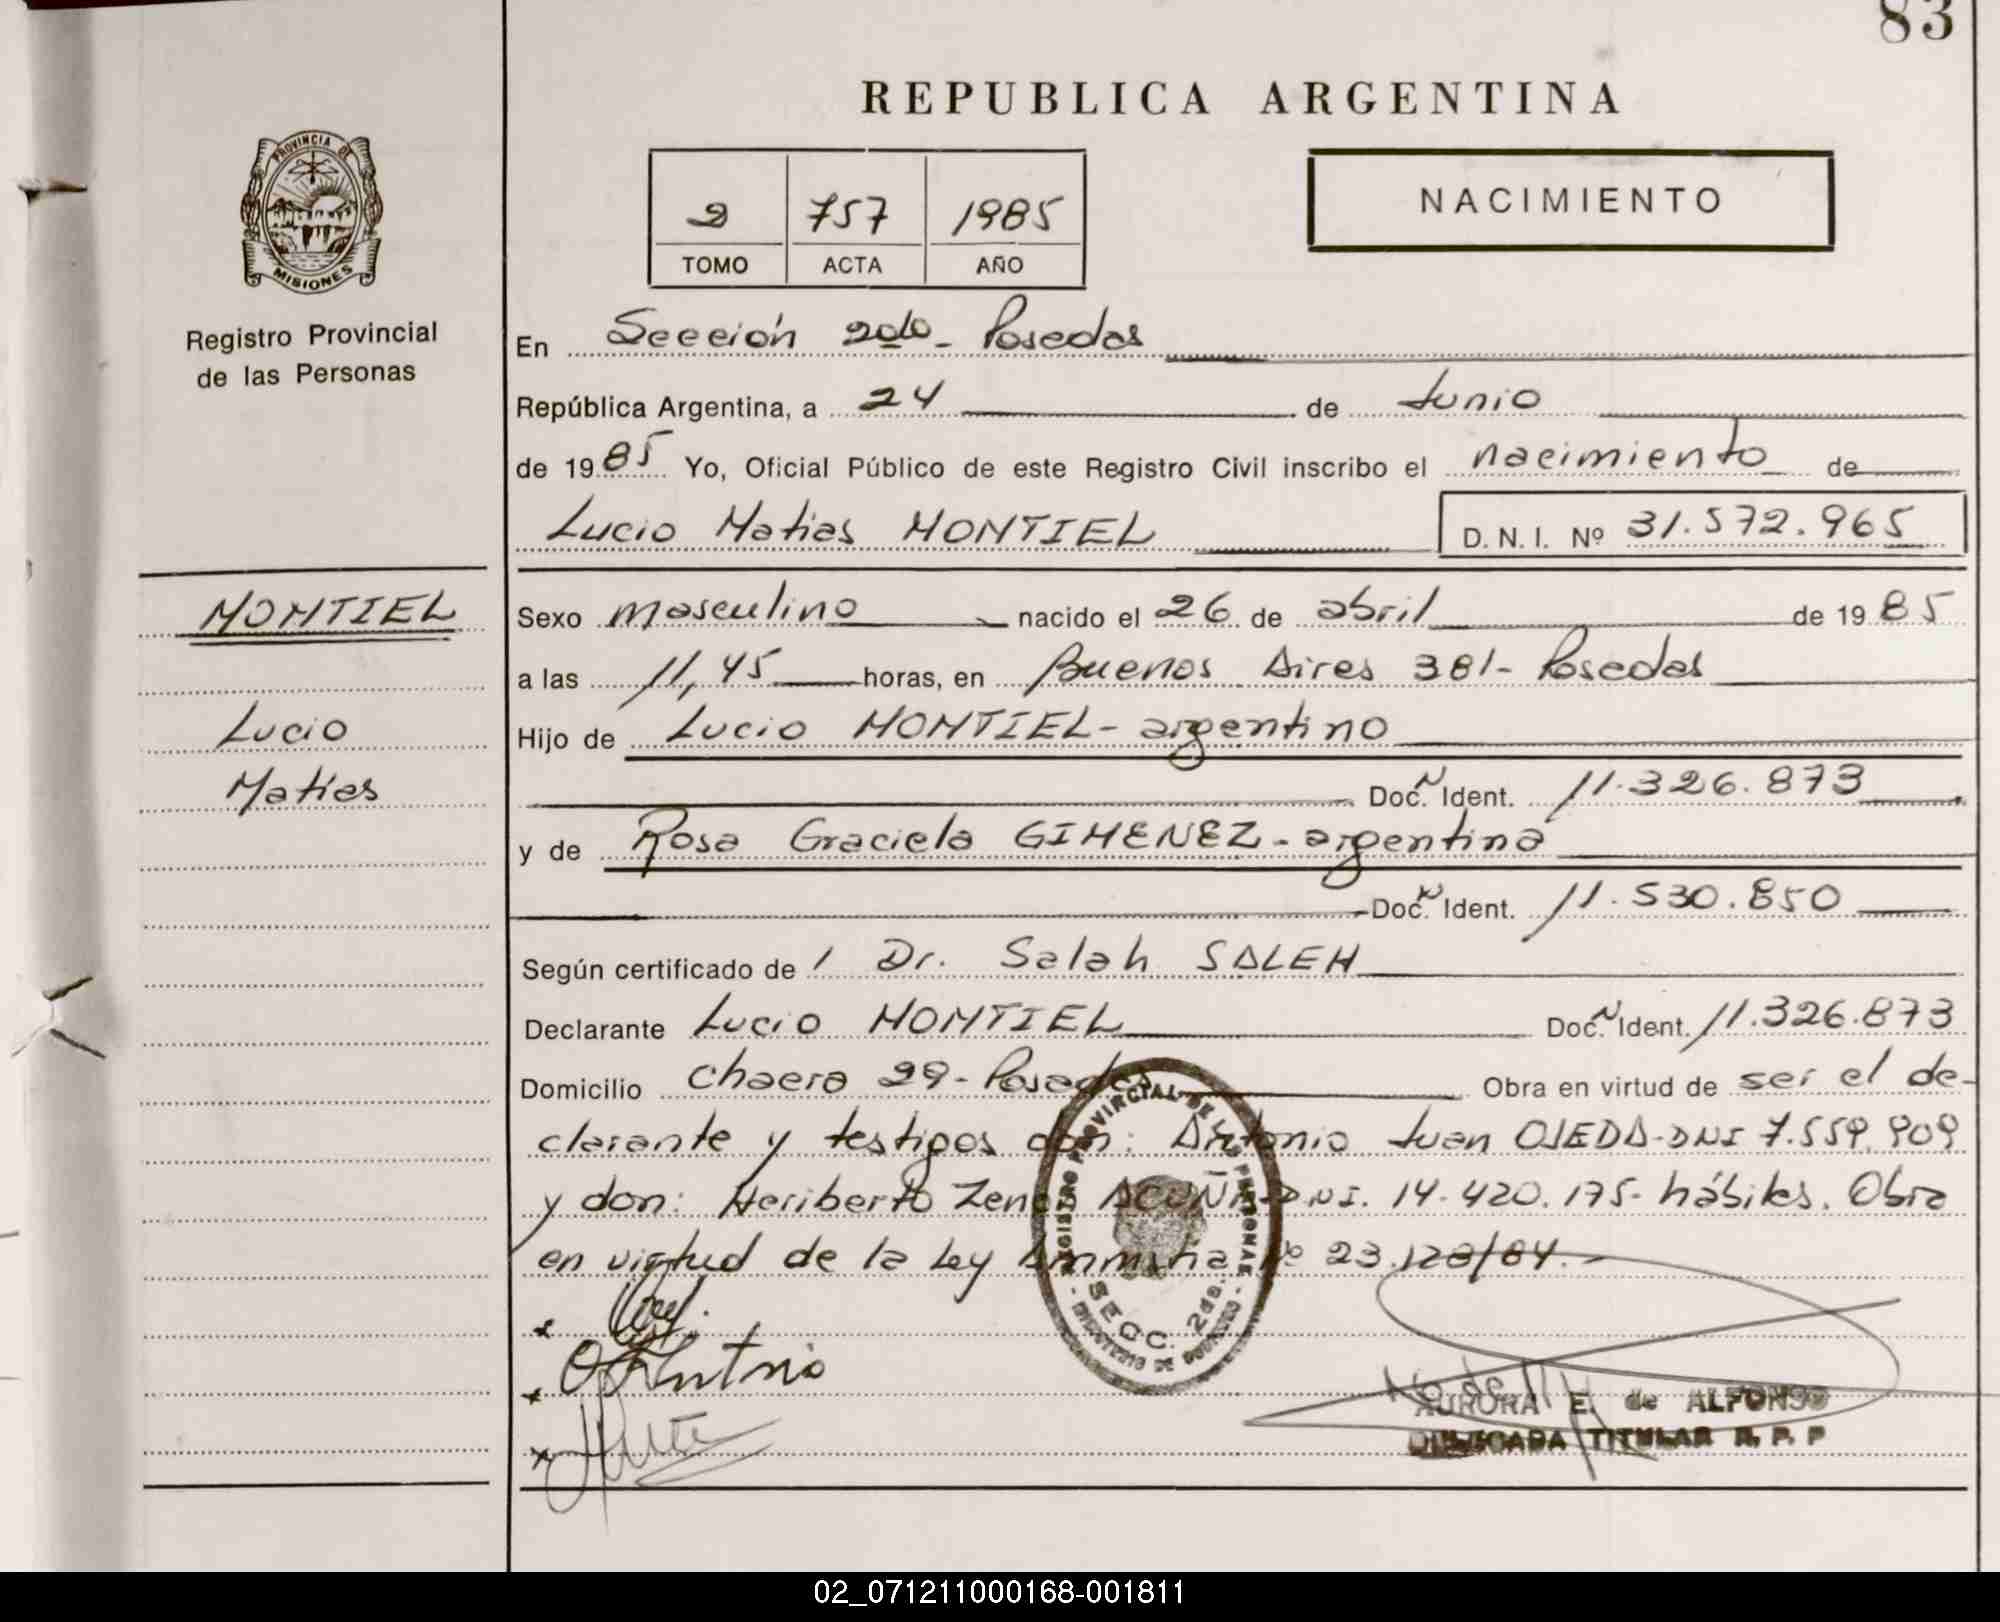 83
REPUBLICA ARGENTINA
PROVINCIA DE
MISIONES
Registro Provincial
de las Personas
2 757 1985
TOMO ACTA AÑO
NACIMIENTO
En Sección 2da - Posadas
República Argentina, a 24 de Junio
de 1985 Yo, Oficial Público de este Registro Civil inscribo el nacimiento de
Lucio Matias MONTIEL D. N. I. Nº 31.572.965
MONTIEL
Lucio
Matias
Sexo masculino nacido el 26 de abril de 1985
a las 11,45 horas, en Buenos Aires 381 - Posadas
Hijo de Lucio MONTIEL - argentino
Doc. Ident. 11.326.873
y de Rosa Graciela GIMENEZ - argentina
Doc. Ident. 11.530.850
Según certificado de / Dr. Salah SALEH
Declarante Lucio MONTIEL Doc. Ident. 11.326.873
Domicilio Chacra 29 - Posadas Obra en virtud de ser el de-
clarante y testigos don: Antonio Juan OJEDA - DNI 7.559.909
y don: Heriberto Zenon ACUÑA - DNI. 14.420.175 - hábiles. Obra
en virtud de la Ley Amnistia Nº 23.128/84.-
REGISTRO PROVINCIAL DE LAS PERSONAS
SECC. 2da.
AURORA E. de ALFONSO
DELEGADA TITULAR R. P. P
02_071211000168-001811